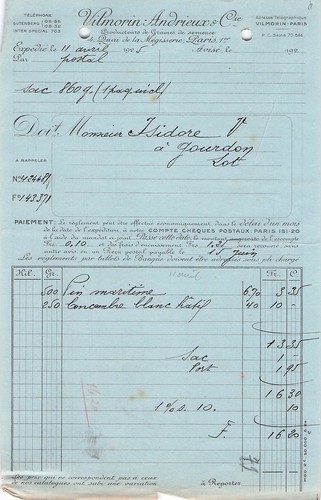 TÉLÉPHONE
GUTENBERG
INTER SPECIAL 703
Vilmorin-Andrieux & Cie
Producteurs de Graines de semence
4, Quai de la Mégisserie, Paris, 1er
Adresse Télégraphique
VILMORIN-PARIS
Expédié le 11 avril 1925
Avisé le 192
Par postal
sac 860 g (1 paquet)
Doit, Monsieur Isidore
à Gourdon
Lot
A RAPPELER
PAIEMENT: Le règlement peut être effectué économiquement dans le délai d'un mois
de la date de l'expédition, à notre COMPTE CHÈQUES POSTAUX: PARIS 191-20
à l'aide du mandat ci joint. Passé cette date le montant augmenté de l'escompte
Frs 0,10 et des frais d'encaissement Frs 1,25 sera recouvré, sans
autre avis par un Reçu postal payable le 15 juin
Les règlements par billets de Banque doivent être adressés sous pli chargé
Kil. Gr. Fr. C
11 avril
500 Pin maritime 670 3 35
250 Concombre blanc hâtif 40 10 -
13 35
Sac 1 -
Port 1 95
16 30
10
F. 16 20
Les prix qui ne correspondent pas à ceux
de nos catalogues ont subi une variation
à Reporter